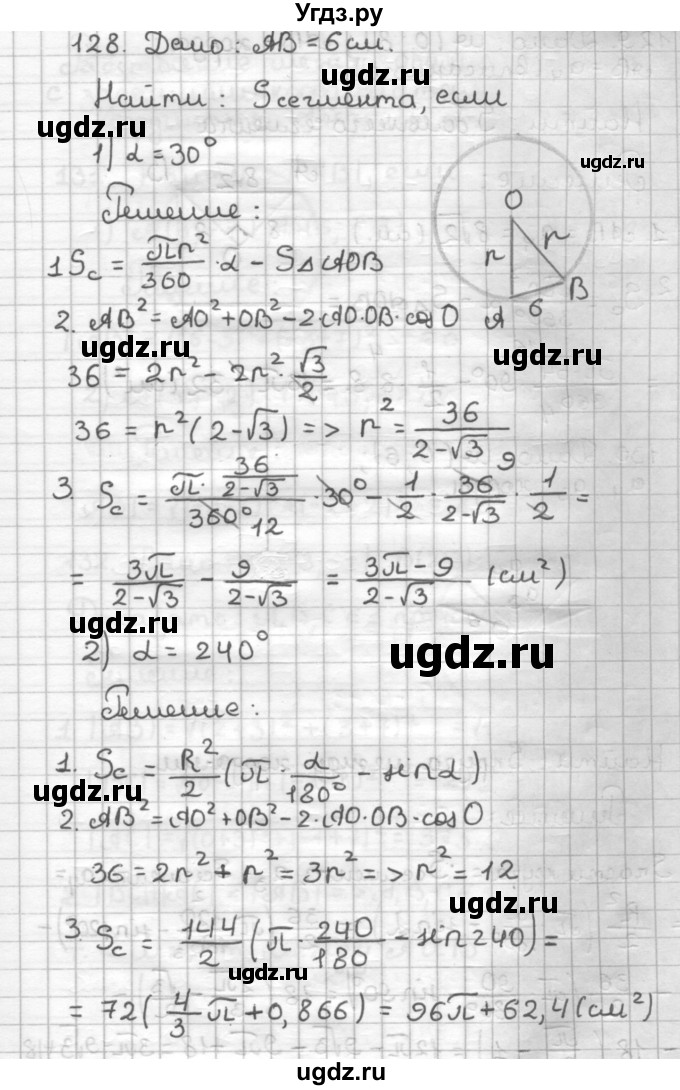 Угдз.ру
128. Дано: AB = 6 см.
ugdz.ru
Найти: Sсегмента, если
ugdz.ru
1) α = 30°
ugdz.ru
Решение:
O
r
r
A
6
B
1 Sc = πr²/360 · α − S△AOB
2. AB² = AO² + OB² − 2·AO·OB·cos O
ugdz.ru
36 = 2r² − 2r² · √3/2
36 = r²(2−√3) => r² = 36/(2−√3)
3. Sc = (π · 36/(2−√3))/360° 12 · 30° − 1/2 · 36 9/(2−√3) · 1/2 =
= 3π/(2−√3) − 9/(2−√3) = (3π−9)/(2−√3) (см²)
ugdz.ru
ugdz.ru
2) α = 240°
Решение:
1. Sc = R²/2 (π · α/180° − sin α)
ugdz.ru
2. AB² = AO² + OB² − 2·AO·OB·cos O
36 = 2r² + r² = 3r² => r² = 12
ugdz.ru
3. Sc = 144/2 (π · 240/180 − sin 240) =
ugdz.ru
= 72(4/3 π + 0,866) = 96π + 62,4 (см²)
ugdz.ru